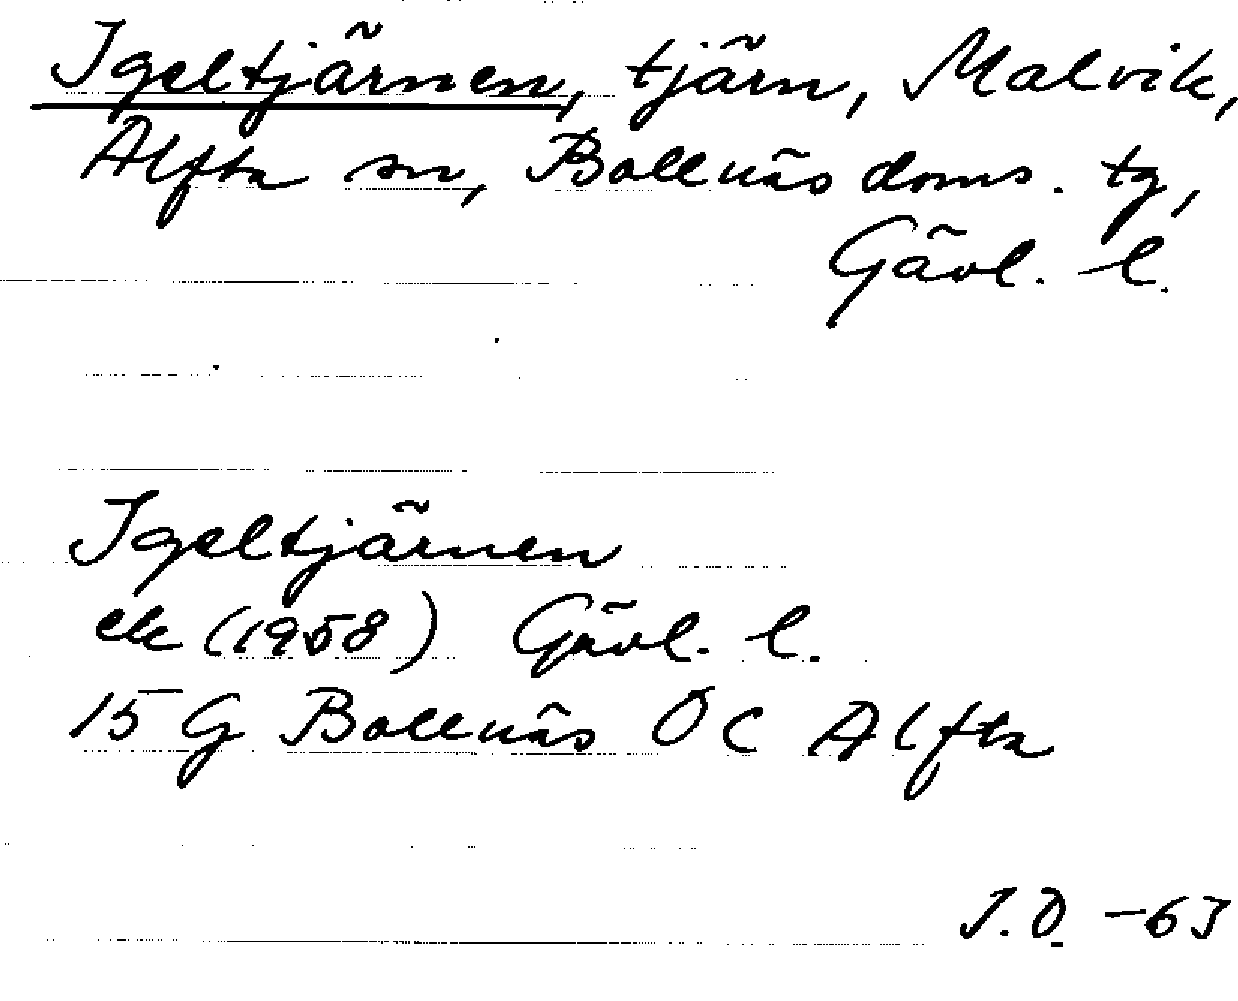 Igeltjärnen, tjärn, Malvik,
Alfta sn, Bollnäs doms. tg,
Gävl. l.
Igeltjärnen
ek (1958) Gävl. l.
15 G Bollnäs ÖC Alfta
I.O. -63